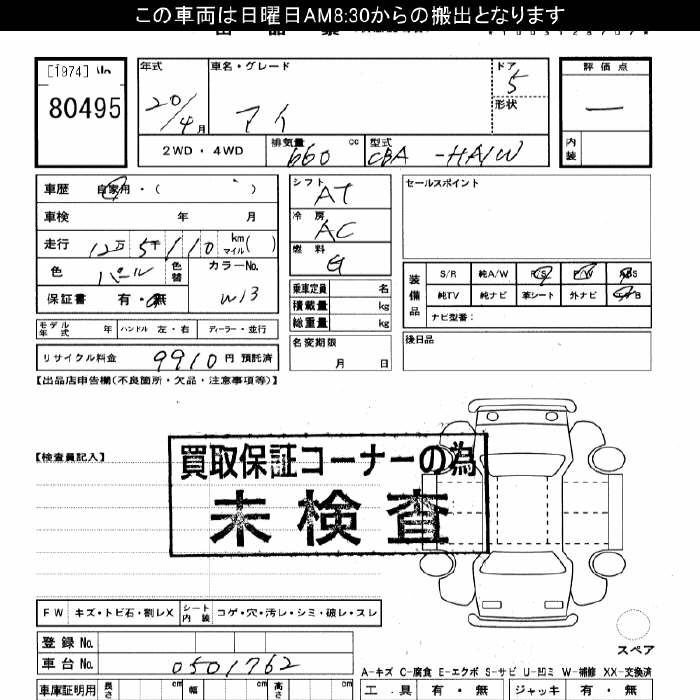 この車両は日曜日AM8:30からの搬出となります
[1974]
80495
年式 車名・グレード ドア 評価点
20/4月 アイ 5 形状 ―
2WD・4WD 排気量 660 cc 型式 CBA-HA1W 内装
車歴 自家用・( )
シフト AT
セールスポイント
車検 年 月
冷房 AC
走行 12万5千110 km マイル( )
燃料 G
色 パール 色替 カラーNo. W13
保証書 有・無
乗車定員 名
積載量 kg
総重量 kg
装備品 S/R 純A/W P/S P/W ABS
純TV 純ナビ 革シート 外ナビ エアB
ナビ型番:
モデル年式 年 ハンドル 左・右 ディーラー・並行
名変期限 月 日
後日品
リサイクル料金 9910 円 預託済
【出品店申告欄(不良箇所・欠品・注意事項等)】
【検査員記入】
買取保証コーナーの為
未検査
FW キズ・トビ石・割レX シート内装 コゲ・穴・汚レ・シミ・破レ・スレ
登録No.
車台No. 0501762
スペア
A-キズ C-腐食 E-エクボ S-サビ U-凹ミ W-補修 XX-交換済
車庫証明用 長さ cm 幅 cm 高さ cm 工具 有・無 ジャッキ 有・無